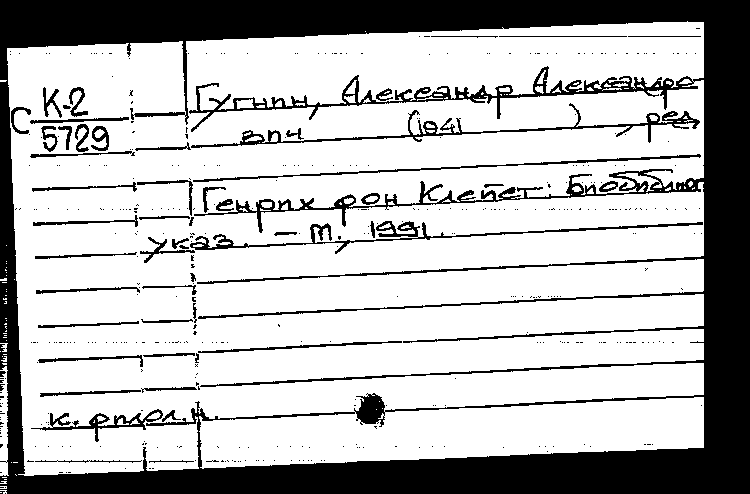 С К-2
5729
Гугнин, Александр Александро-
вич (1941 ) , ред.
Генрих фон Клейст: Биобиблиог.
указ. – М., 1991.
к. филол. н.